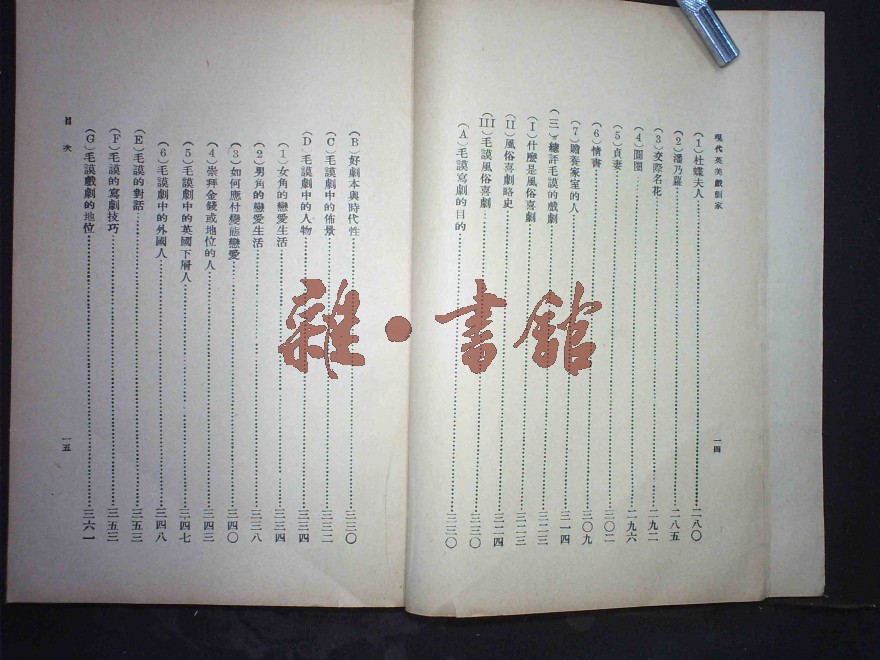 現代英美戲劇家
(1)杜蝶夫人………二八〇
(2)潘乃蘿………二八五
(3)交際名花………二九二
(4)圓圈………二九六
(5)貞妻………三〇二
(6)情書………三〇九
(7)贍養家室的人………三一四
(三)總評毛謨的戲劇………三二三
(I)什麼是風俗喜劇………三二三
(II)風俗喜劇略史………三二四
(III)毛謨風俗喜劇………三三〇
(A)毛謨寫劇的目的………三三〇
一四
(B)好劇本與時代性………三三〇
(C)毛謨劇中的佈景………三三二
(D)毛謨劇中的人物………三三四
(1)女角的戀愛生活………三三四
(2)男角的戀愛生活………三三八
(3)如何應付變態戀愛………三四〇
(4)崇拜金錢或地位的人………三四三
(5)毛謨劇中的英國下層人………三四七
(6)毛謨劇中的外國人………三四八
(E)毛謨的對話………三五三
(F)毛謨的寫劇技巧………三五三
(G)毛謨戲劇的地位………三六一
目次
一五
雜·書館